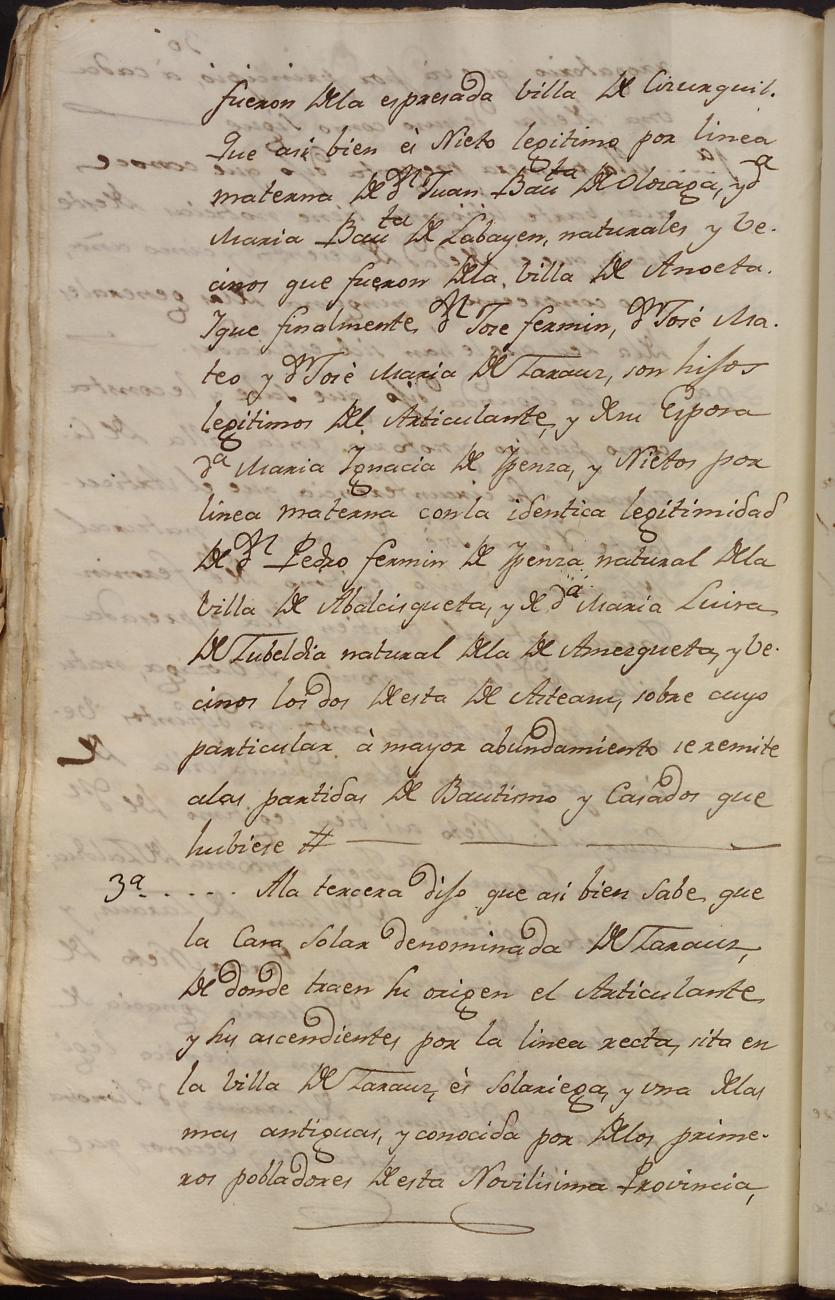 fueron dela espresada Villa de Cirurquil.
Que asi bien és Nieto legitimo por linea
materna de Dn Juan Bauta de Olozaga, y da
Maria Bauta de Labayen, naturales y Ve-
cinos que fueron dela Villa de Anoeta.
Yque finalmente Dn José fermin, Dn José Ma-
teo y Dn José Maria de Tarauz, son hijos
legitimos del Articulante, y desu Esposa
da Maria Ygnacia de Ypenza, y Nietos por
linea materna conla identica legitimidad
de Dn Pedro fermin de Ypenza natural dela
Villa de Abalcisqueta, y de da Maria Luisa
de Zubeldia natural dela de Amezqueta, y Ve-
cinos los dos desta de Asteasu, sobre cuyo
particular à mayor abundamiento se remite
alas partidas de Bautismo y Casados que
hubiese #
3a. .... Ala tercera dijo que asi bien Sabe que
la Casa Solar denominada de Tarauz,
de donde traen su origen el Articulante,
y sus ascendientes por la linea recta, sita en
la Villa de Tarauz, és Solariega, y una delas
mas antiguas, y conocida por delos prime-
ros pobladores desta Novilisima Provincia,